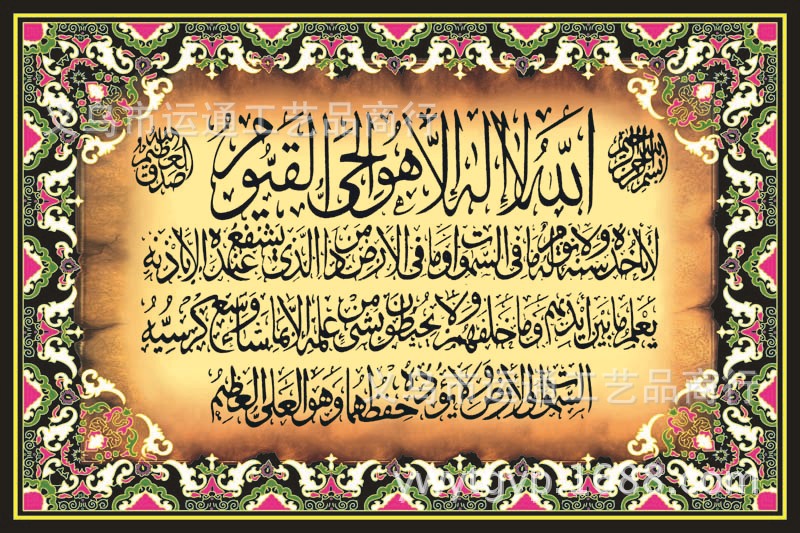 بسم الله الرحمن الرحيم
الله لا إله إلا هو الحي القيوم
صدق الله العظيم
لا تأخذه سنة ولا نوم له ما في السموات وما في الأرض من ذا الذي يشفع عنده إلا بإذنه
يعلم ما بين أيديهم وما خلفهم ولا يحيطون بشيء من علمه إلا بما شاء وسع كرسيه
السموات والأرض ولا يؤده حفظهما وهو العلي العظيم
义乌市运通工艺品商行
义乌市运通工艺品商行
ywytgyp.1688.com